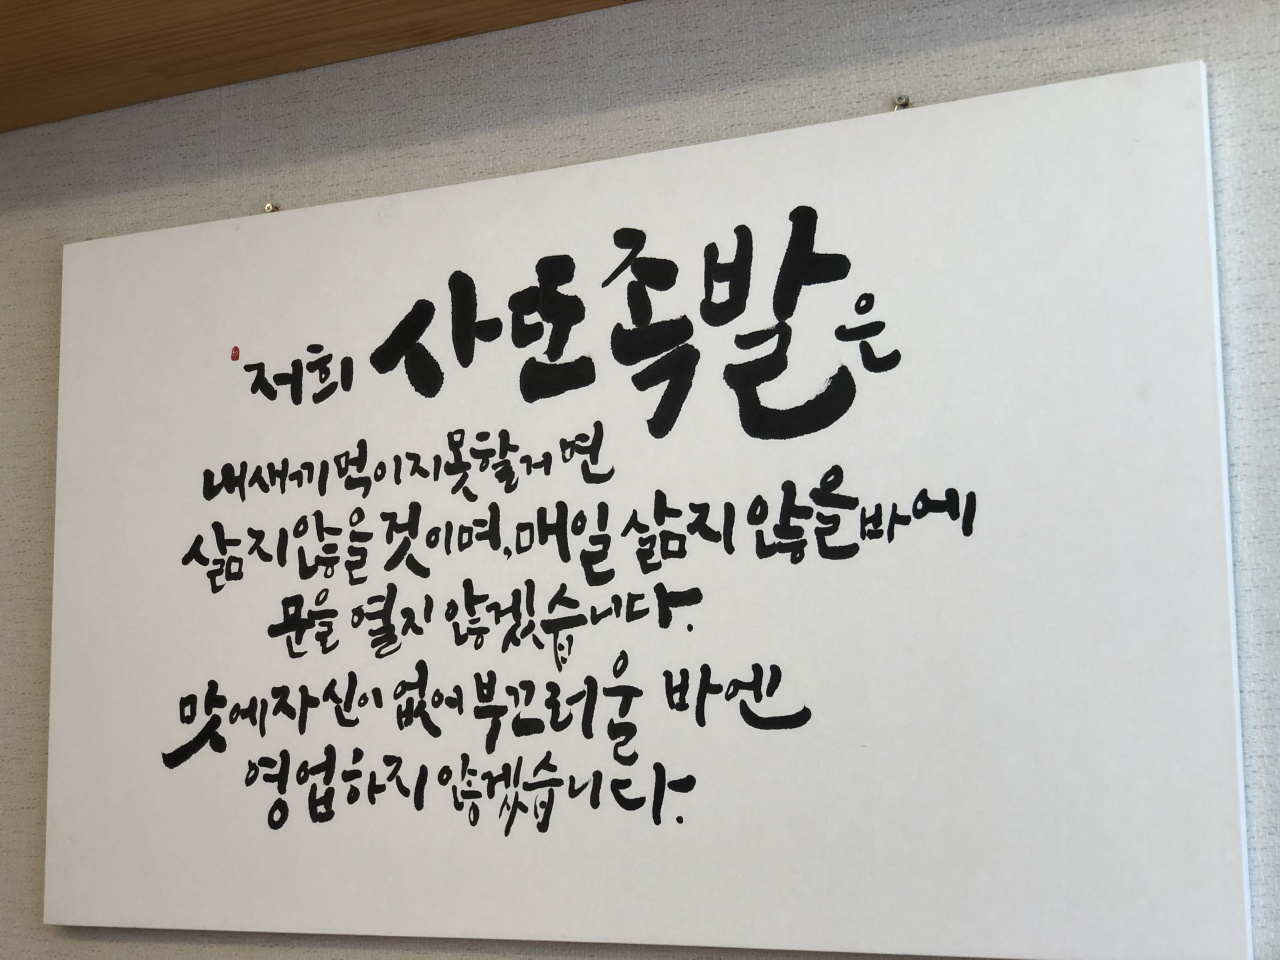 저희 사도족발은
내새끼 먹이지 못할거면
삶지 않을 것이며, 매일 삶지 않을 바에
문을 열지 않겠습니다.
맛에 자신이 없어 부끄러울 바엔
영업하지 않겠습니다.